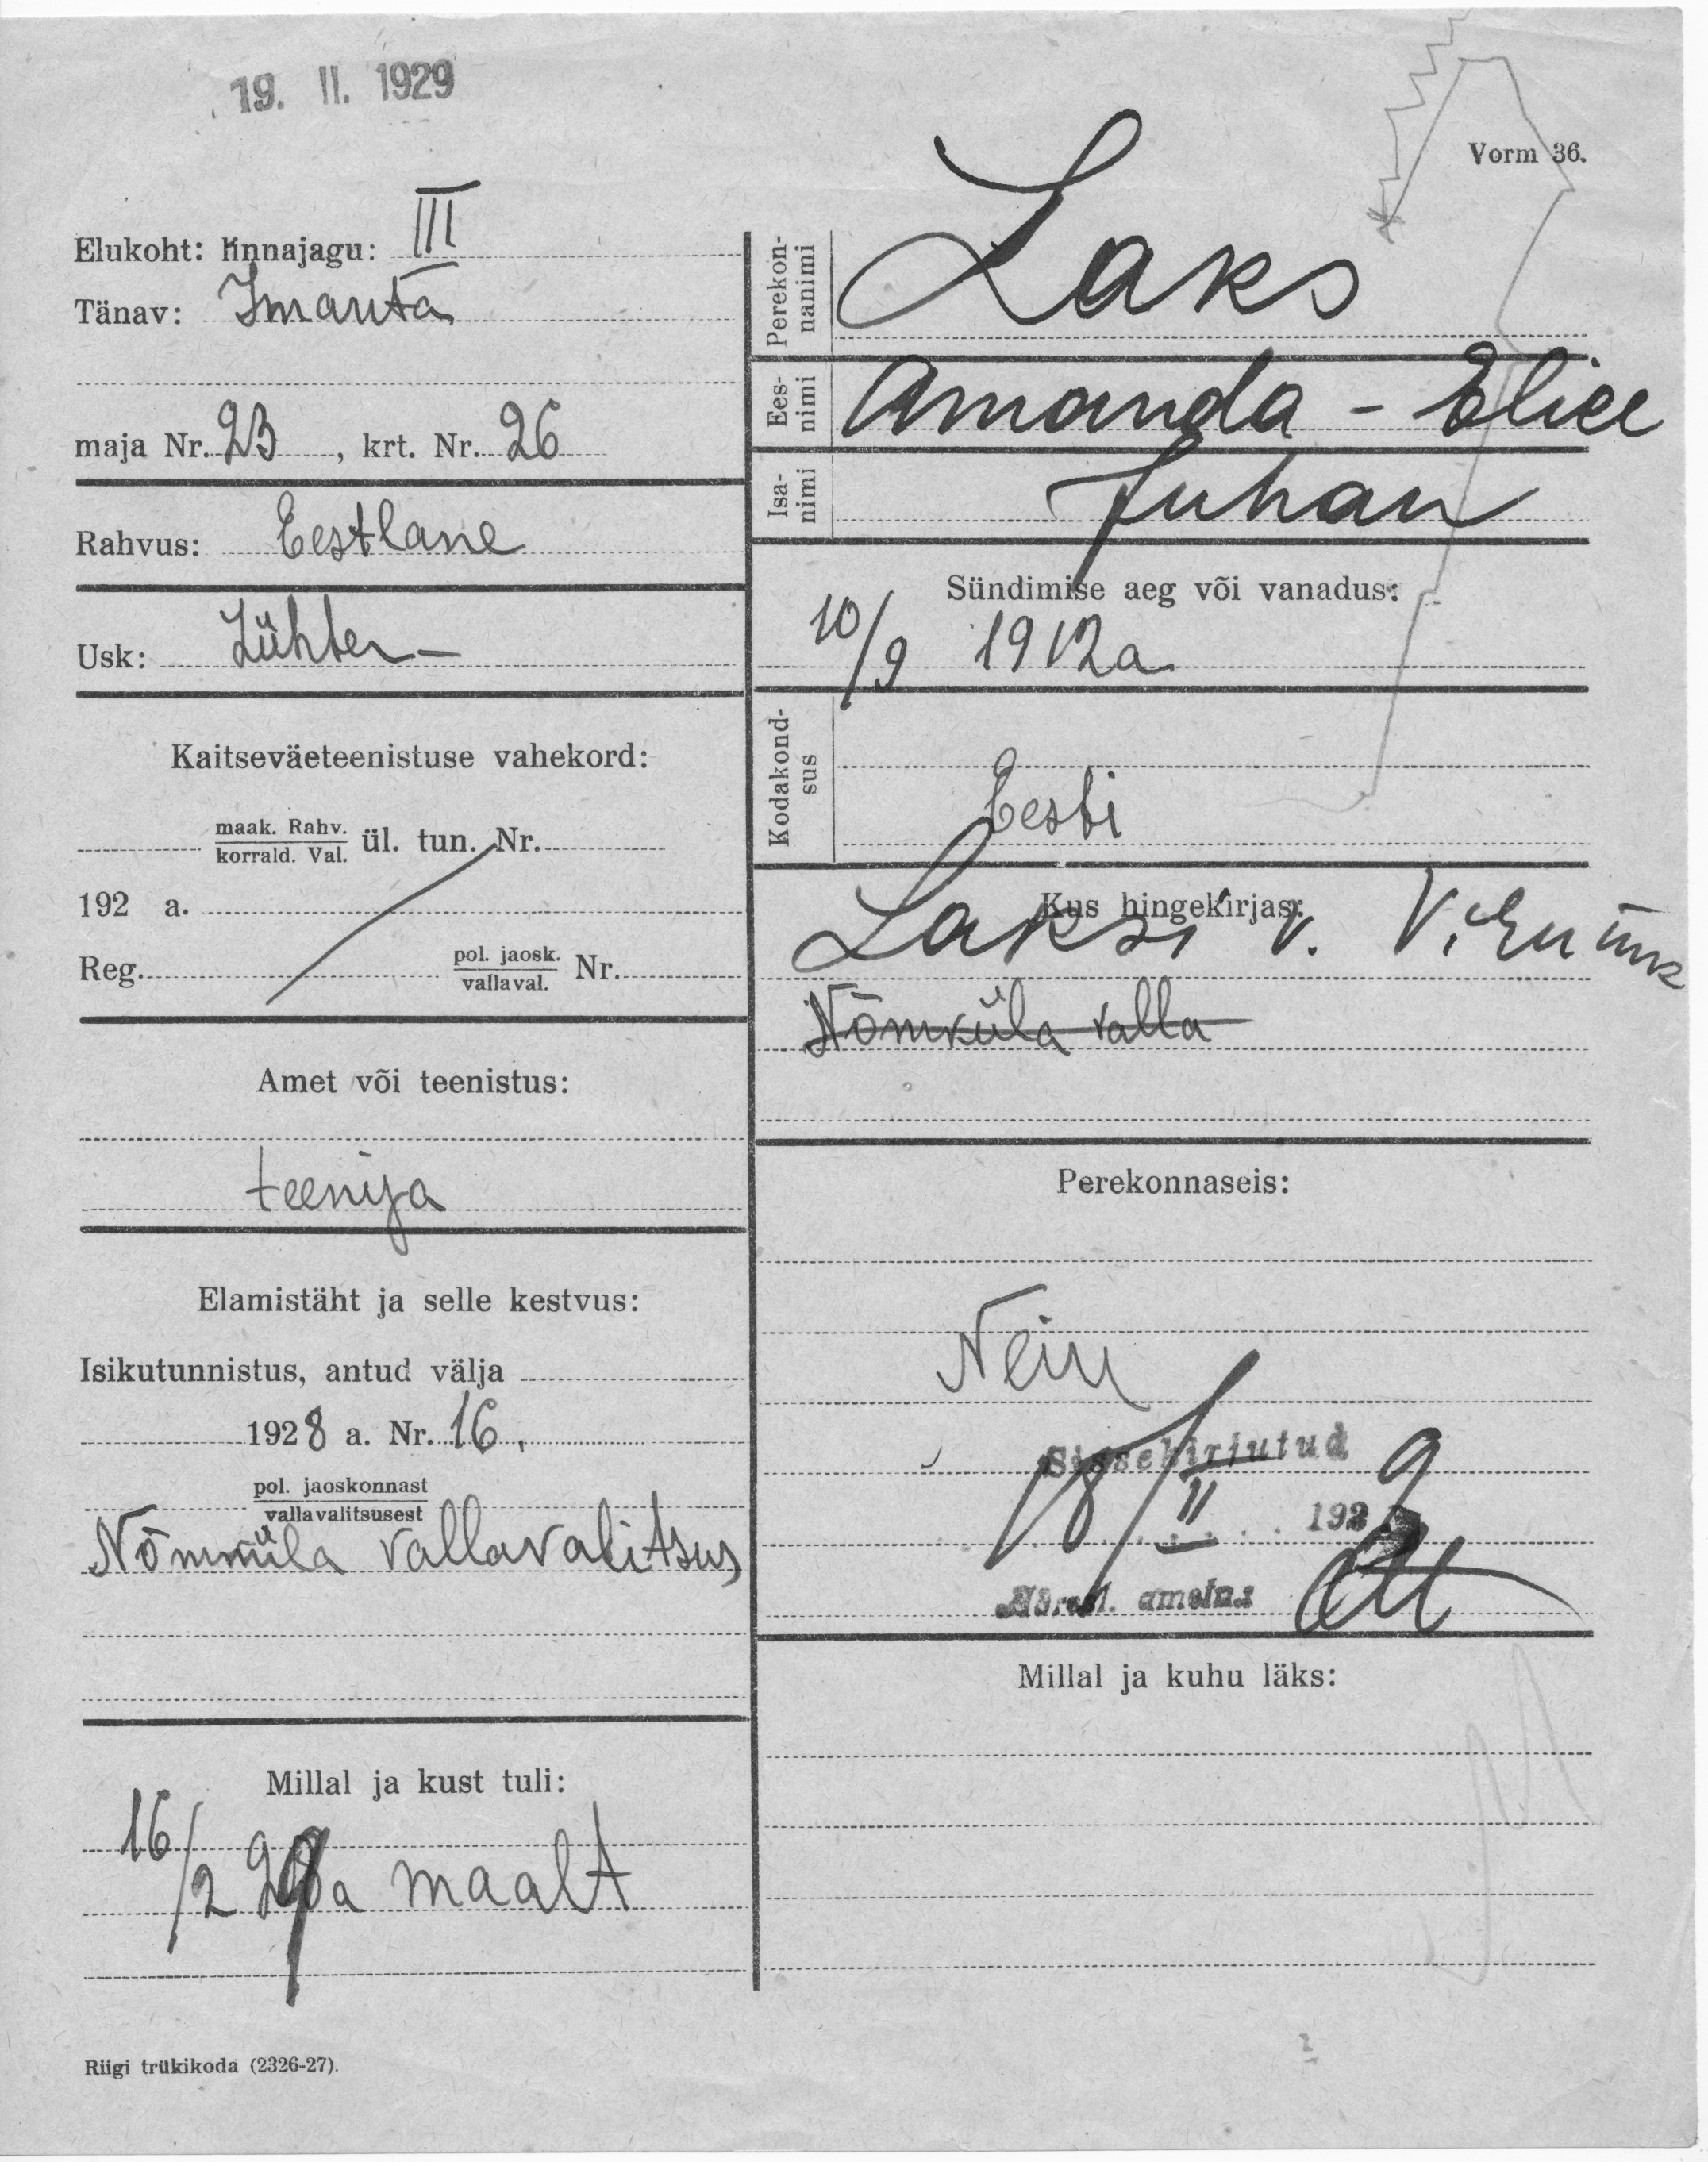 19. II. 1929
Vorm 36.
Elukoht: linnajagu: III
Tänav: Imanta
maja Nr. 23, krt. Nr. 26
Rahvus: Eestlane
Usk: Lühter-
Kaitseväeteenistuse vahekord:
maak. Rahv.
korrald. Val. ül. tun. Nr.
192 a.
Reg. pol. jaosk.
vallaval. Nr.
Amet või teenistus:
teenija
Elamistäht ja selle kestvus:
Isikutunnistus, antud välja
1928 a. Nr. 16,
pol. jaoskonnast
vallavalitsusest
Nõmküla vallavalitsus
Millal ja kust tuli:
16/2 29 a maalt
Riigi trükikoda (2326-27).
Perekon-
nanimi
Laks
Ees-
nimi
Amanda - Eliee
Isa-
nimi
Juhan
Sündimise aeg või vanadus:
10/9 1912a
Kodakond-
sus
Eesti
Kus hingekirjas:
Laksi v. Virumk
Nõmküla valla
Perekonnaseis:
Neiu
Sissekirjutud
18/II 1929
ametn.:
Millal ja kuhu läks: